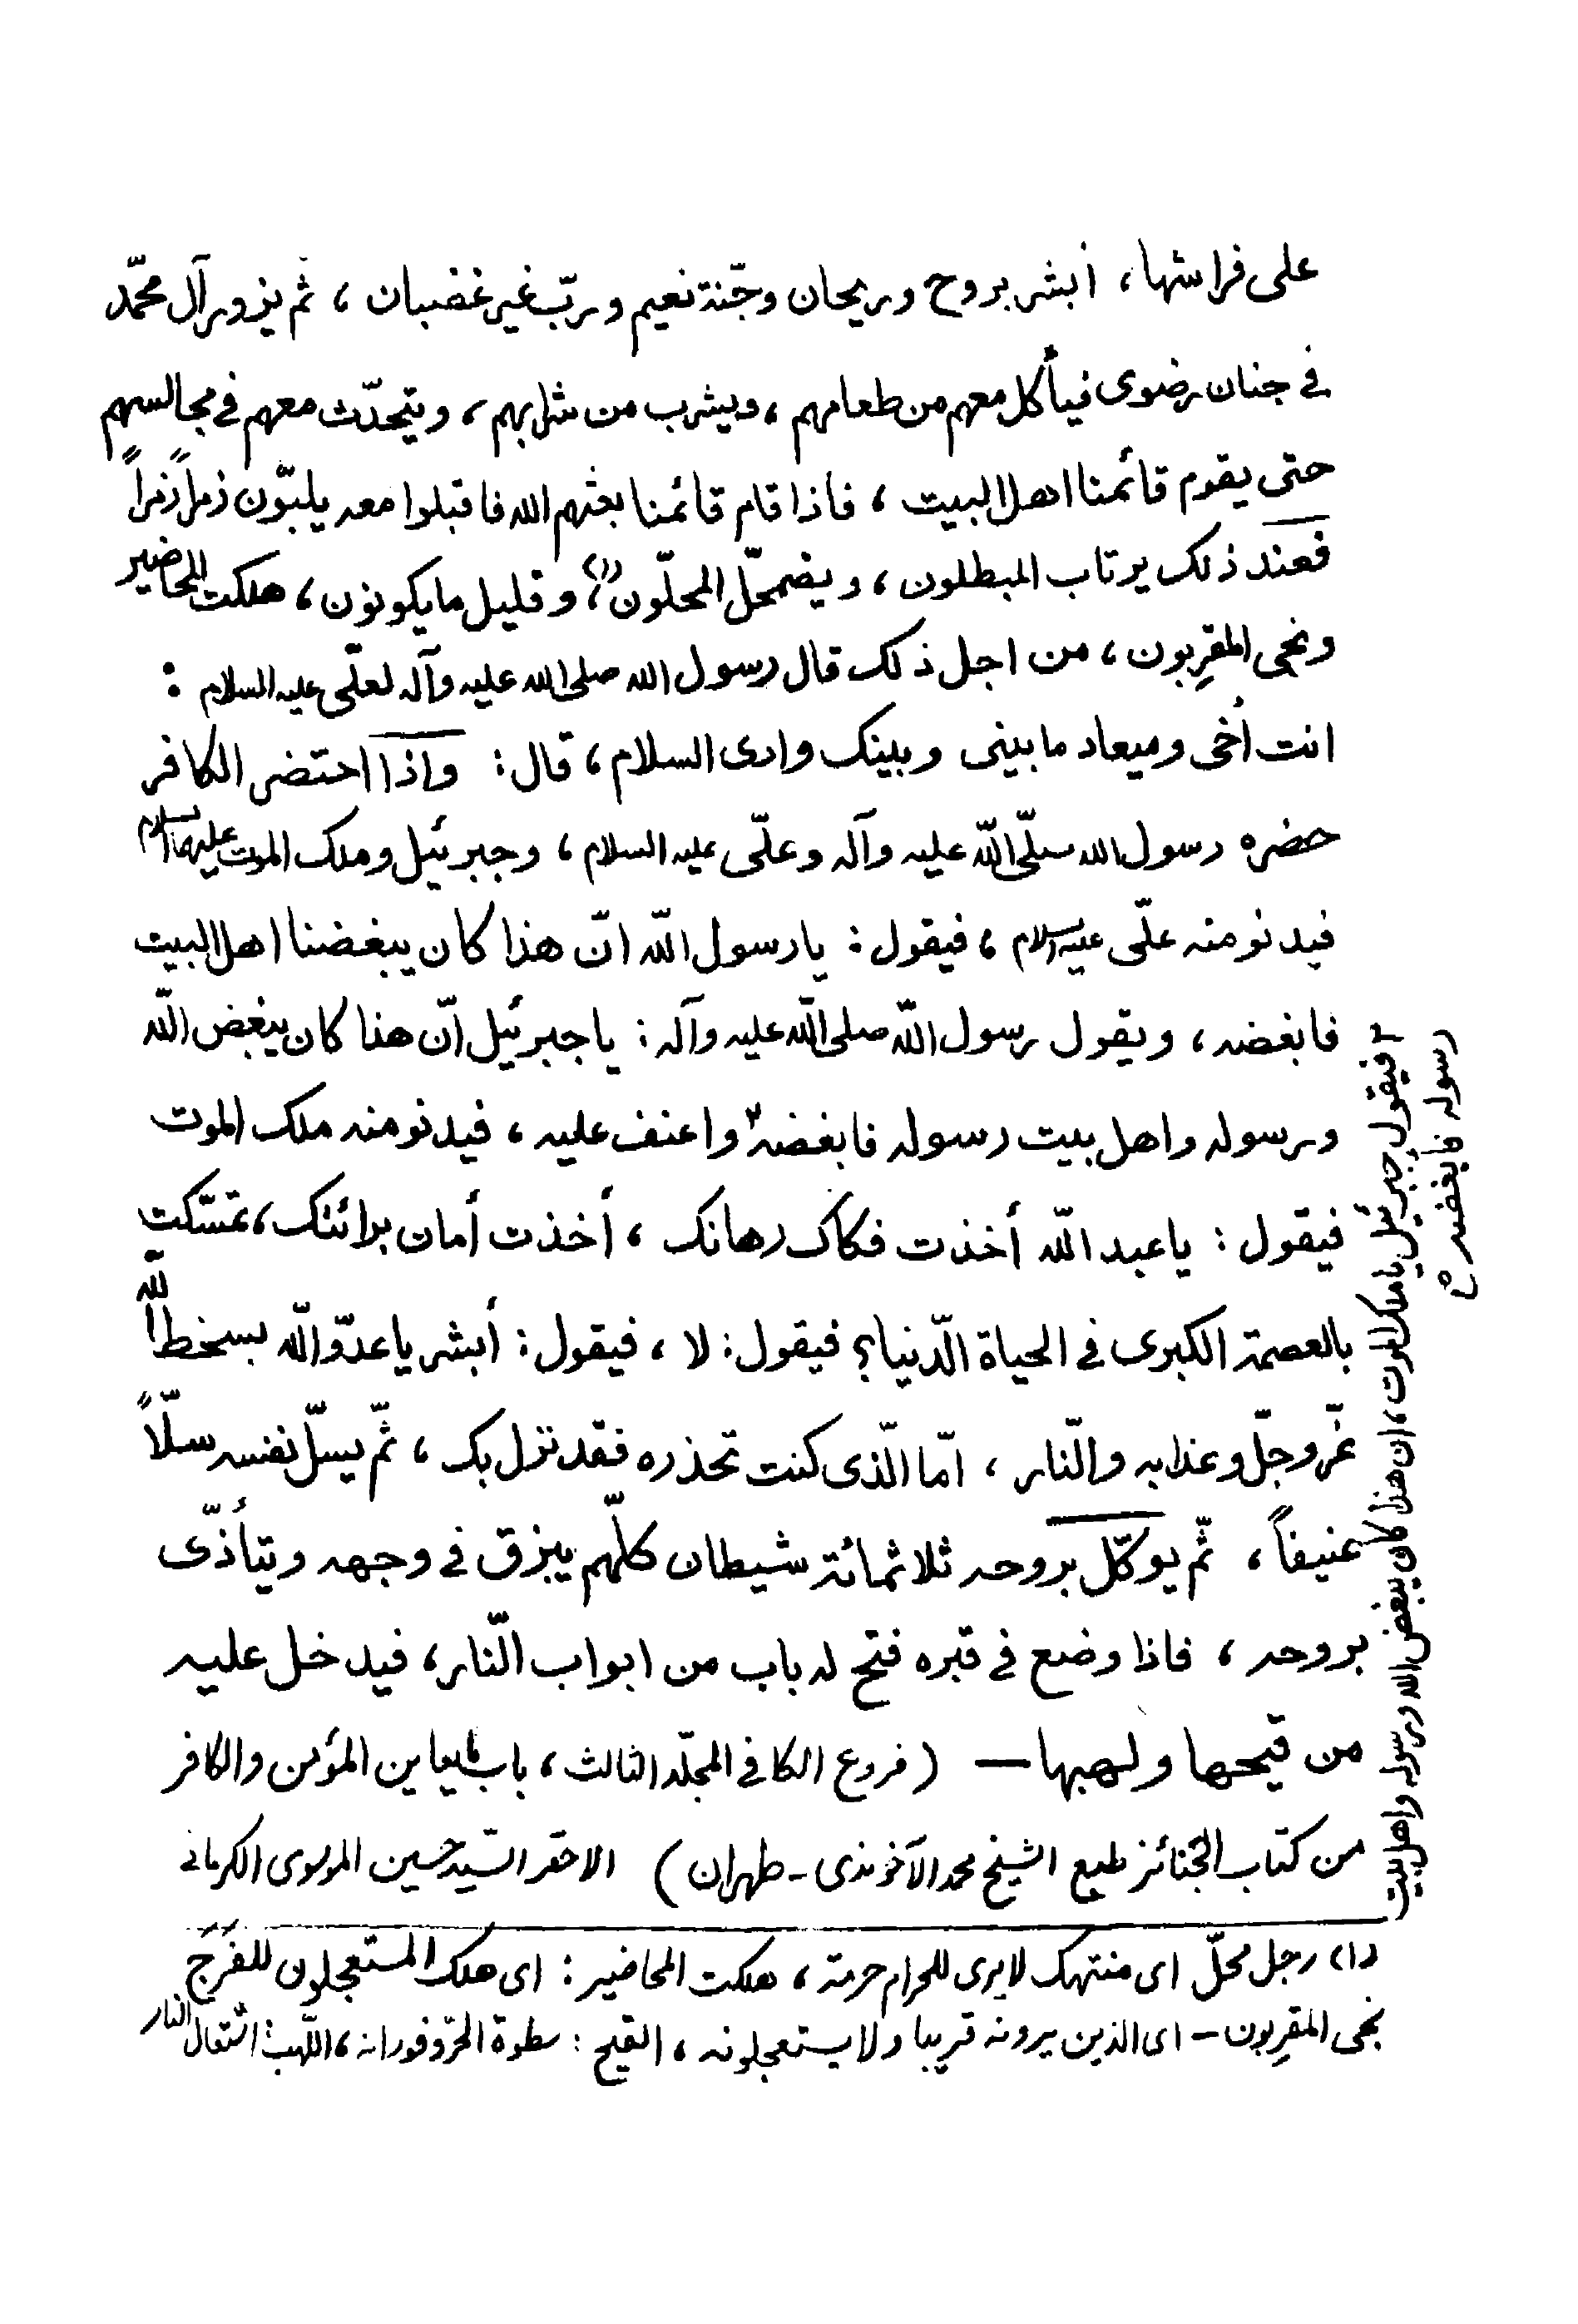 على فراشها، أبشر بروح وريحان وجّنة نعيم وربّ غير غضبان، ثم يزور آل محمّد
في جنان رضوى فيأكل معهم من طعامهم، ويشرب من شرابهم، ويتحدّث معهم في مجالسهم
حتى يقوم قائمنا اهل البيت، فاذا قام قائمنا بعثهم الله فاقبلوا معه يلبّون زمراً زمراً
فعند ذلك يرتاب المبطلون، ويضمحلّ المحلّون (١)، وقليل ما يكونون، هلكت المحاضير
ونجى المقرِبون، من اجل ذلك قال رسول الله صلى الله عليه وآله لعلّى عليه السلام :
انت أخى وميعاد ما بينى وبينك وادى السلام، قال: واذا احتضر الكافر
حضره رسول الله صلّى اللّه عليه وآله وعلّى عليه السلام، وجبرئيل وملك الموت عليهما السلام
فيدنو منه علّى عليه السلام، فيقول: يا رسول اللّه انّ هذا كان يبغضنا اهل البيت
فابغضه، ويقول رسول اللّه صلى اللّه عليه وآله: يا جبرئيل انّ هذا كان يبغض اللّه
ورسوله واهل بيت رسوله فابغضه٢ واعنف عليه، فيدنو منه ملك الموت
فيقول: يا عبد اللّه أخذت فكاك رهانك، أخذت أمان برائتك، تمسّكت
بالعصمة الكبرى في الحياة الّدنيا؟ فيقول: لا، فيقول: أبشر يا عدّو اللّه بسخط اللّه
عّزوجلّ وعذابه والّنار، امّا الّذى كنت تحذره فقد نزل بك، ثّم يسلّ نفسه سلّاً
عنيفاً، ثّم يوكّل بروحه ثلاثمائة شيطان كلّهم يبزق في وجهه ويتأذّى
بروحه، فاذا وضع في قبره فتح له باب من ابواب الّنار، فيدخل عليه
من قيحها ولهبها — (فروع الكافي المجلّد الثالث، باب ما يعاين المؤمن والكافر
من كتاب الجنائز طبع الشيخ محمد الآخوندى - طهران) الاحقر السّيد حسين الموسوى الكرمانى
(١) رجل محلّ اى منتهك لايرى للحرام حرمة، هلكت المحاضير: اى هلك المستعجلون للفَرَج
نجى المقرِبون - اى الذين يرونه قريبا ولا يستعجلونه، القيح: سطوة الحرّ وفورانه، اللّهب: اشتعال النار
٢ فيقول جبرئيل يا ملك الموت، ان هذا كان يبغض الله ورسوله واهل بيت
رسوله فابغضه